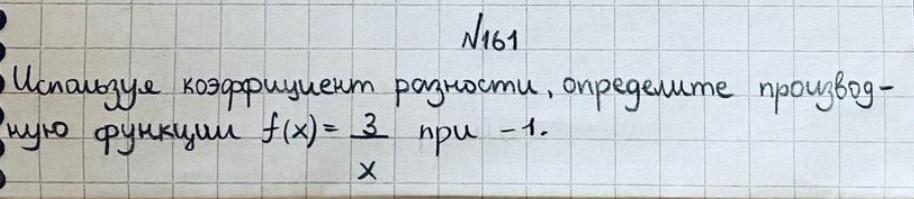 №161
Используя коэффициент разности, определите производ-
ную функции f(x)= 3/x при -1.